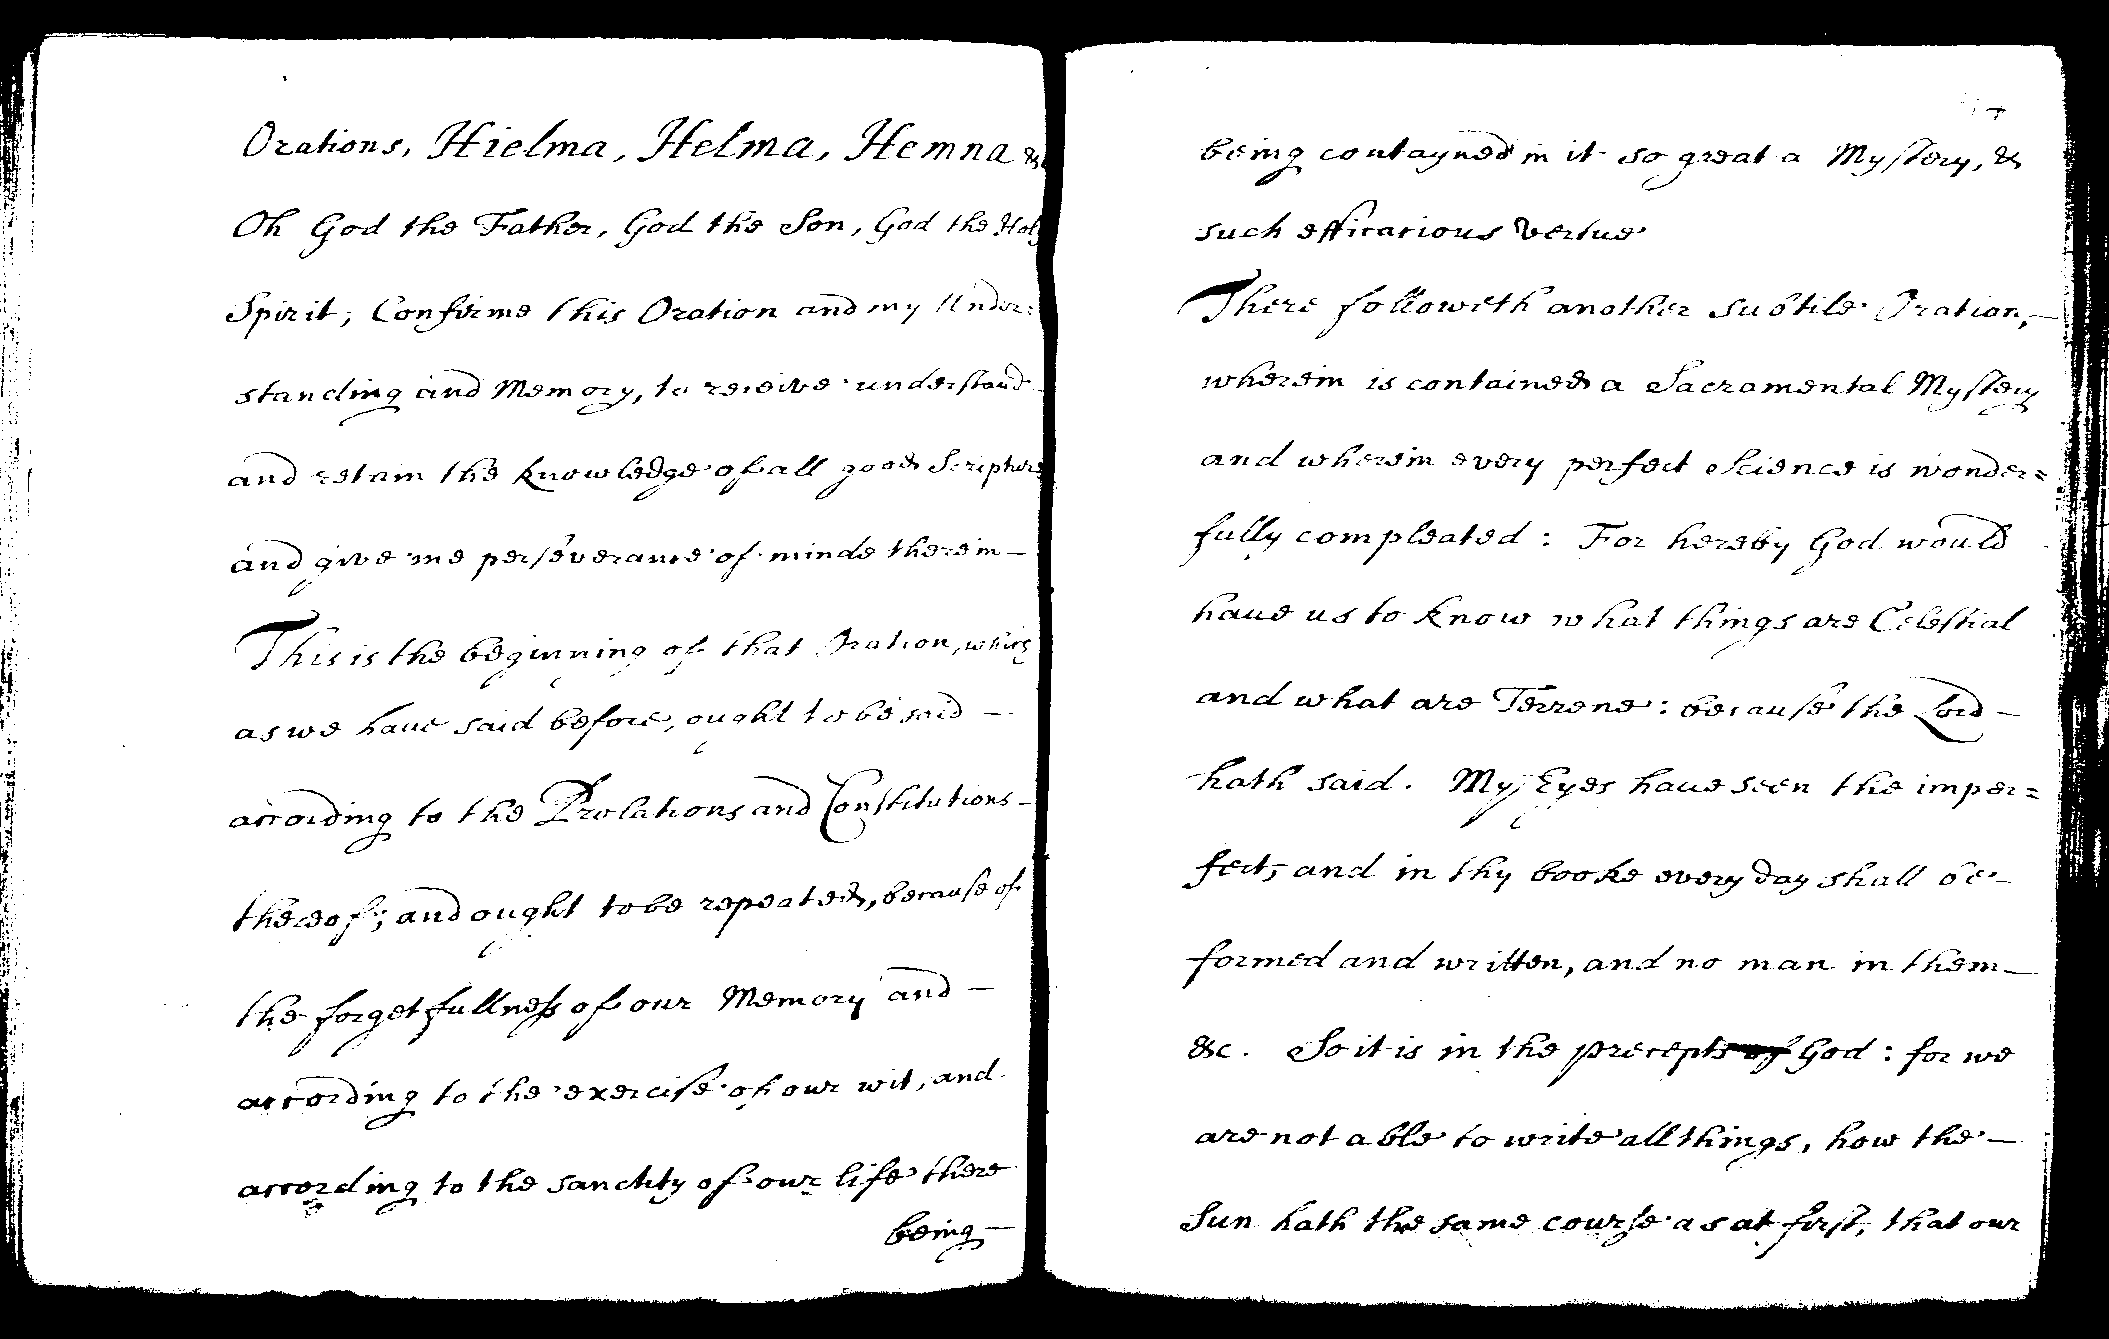 Orations, Hielma, Helma, Hemna &c
Oh God the Father, God the Son, God the Holy
Spirit; Confirme this Oration and my Under=
standing and Memory, to receive understand
and retain the knowledge of all good Scriptures
and give me perseverance of minde therein —
This is the beginning of that Oration, which
as we haue said before, ought to be said —
according to the Prolations and Constitutions —
thereof; and ought to be repeated, because of
the forgetfullness of our Memory and —
according to the exercise of our wit, and
according to the sanctity of our life there
being —
being contayned in it so great a Mystery, &
such efficacious vertue
There followeth another subtile Oration, —
wherein is contained a Sacramental Mystery
and wherein every perfect Science is wonder=
fully compleated : For hereby God would
haue us to know what things are Celestial
and what are Terrene : because the Lord —
hath said. My Eyes haue seen the imper=
fect, and in thy booke every day shall be —
formed and written, and no man in them —
&c. So it is in the precepts of God : for we
are not able to write all things, how the —
Sun hath the same course as at first, that our